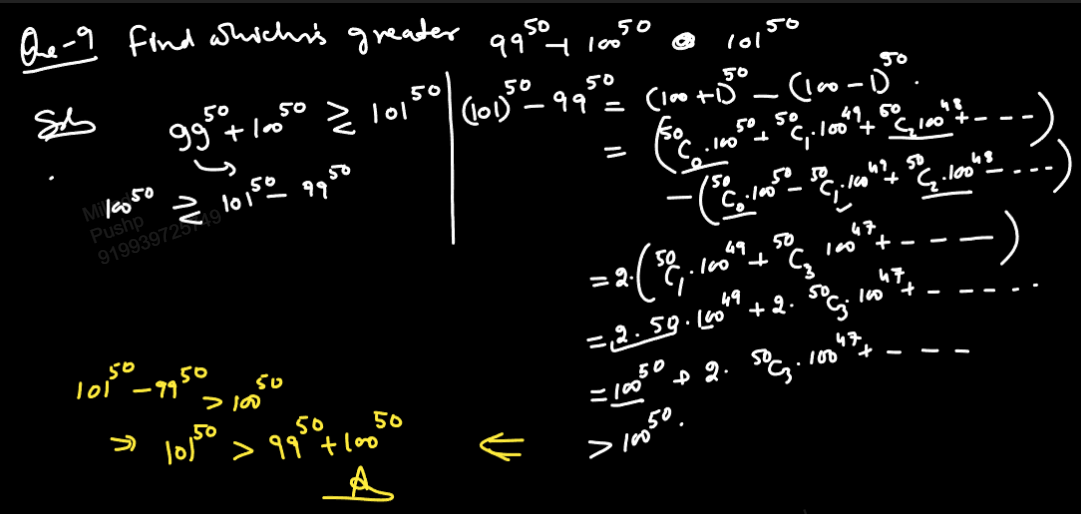 Que-9 Find which is greater 99^50 + 100^50 @ 101^50
Sol.
99^50 + 100^50 ≷ 101^50
100^50 ≷ 101^50 - 99^50
(101)^50 - 99^50 = (100+1)^50 - (100-1)^50.
= (^50C_0.100^50 + ^50C_1.100^49 + ^50C_2 100^48 + ----)
- (^50C_0.100^50 - ^50C_1.100^49 + ^50C_2.100^48 - ----)
= 2.(^50C_1.100^49 + ^50C_3 100^47 + ----)
= 2.50.100^49 + 2. ^50C_3. 100^47 + ------
= 100^50 + 2. ^50C_3.100^47 + ---
> 100^50.
101^50 - 99^50 > 100^50
⇒ 101^50 > 99^50 + 100^50 ⇐
A
Pushp